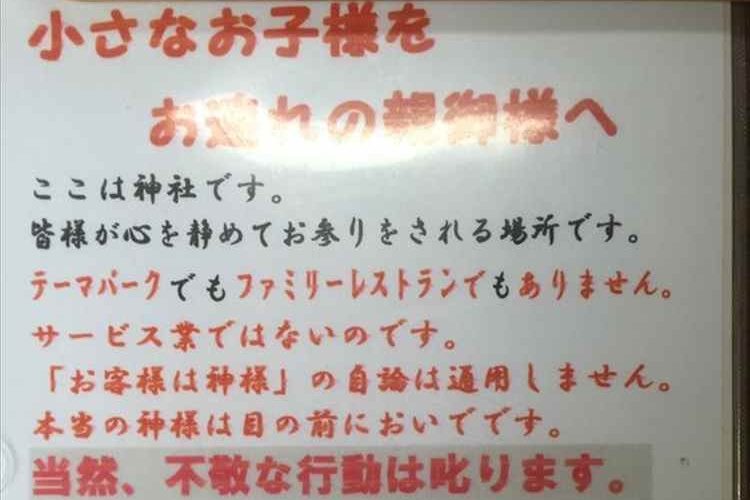 小さなお子様を
お連れの親御様へ
ここは神社です。
皆様が心を静めてお参りをされる場所です。
テーマパークでもファミリーレストランでもありません。
サービス業ではないのです。
「お客様は神様」の自論は通用しません。
本当の神様は目の前においでです。
当然、不敬な行動は叱ります。